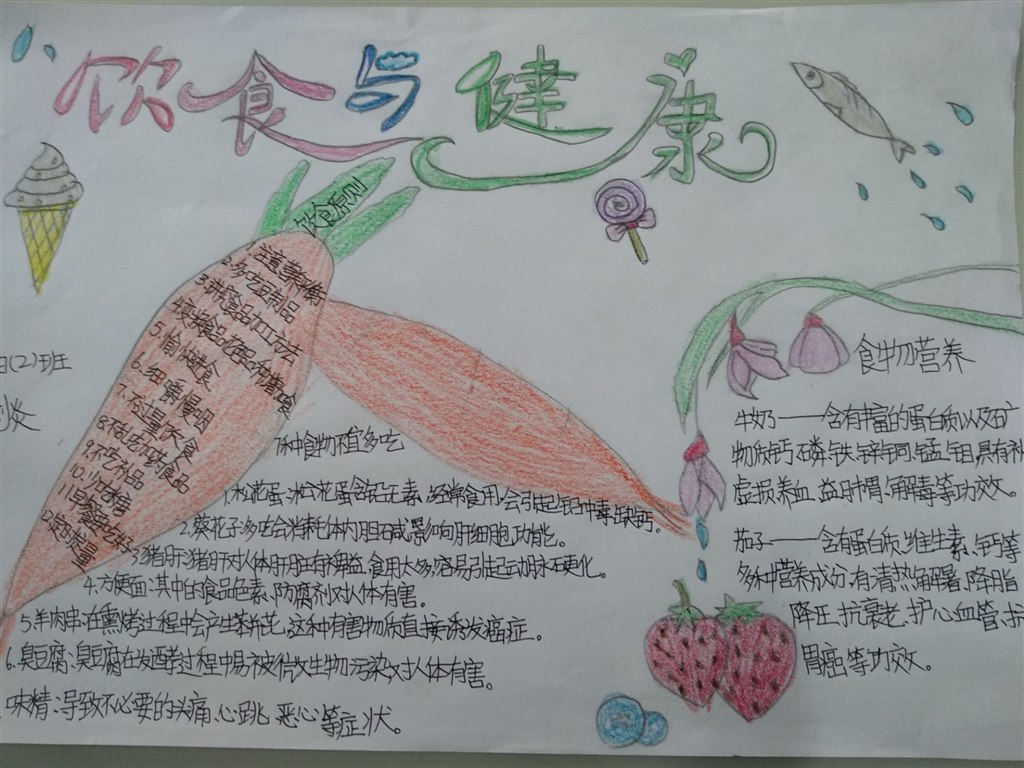 饮食与健康
饮食原则
1.注意
2.多吃豆制品
3.讲究食品加工方法
5.愉快进食
6.细嚼慢咽
7.不过量饮食
9.不吃补品
10.少吃糖
(2)班
7种食物不宜多吃
1.松花蛋:松花蛋含铅元素,经常食用,会引起铅中毒,缺钙。
2.葵花子:多吃会消耗体内胆碱,影响肝细胞功能。
3.猪肝:猪肝对人体肝脏有裨益,食用太多,容易引起动脉硬化。
4.方便面:其中的食品色素、防腐剂对人体有害。
5.羊肉串:在熏烤过程中会产生,这种有害物质直接诱发癌症。
6.臭豆腐:臭豆腐在发酵过程中易被微生物污染,对人体有害。
味精:导致不必要的头痛、心跳、恶心等症状。
食物营养
牛奶——含有丰富的蛋白质以及矿
物质钙、磷、铁、锌、铜、锰、钼,具有补
虚损养血、益肺胃、解毒等功效。
茄子——含有蛋白质、维生素、钙等
多种营养成分,有清热解暑、降脂
降压、抗衰老、护心血管、抗
胃癌等功效。